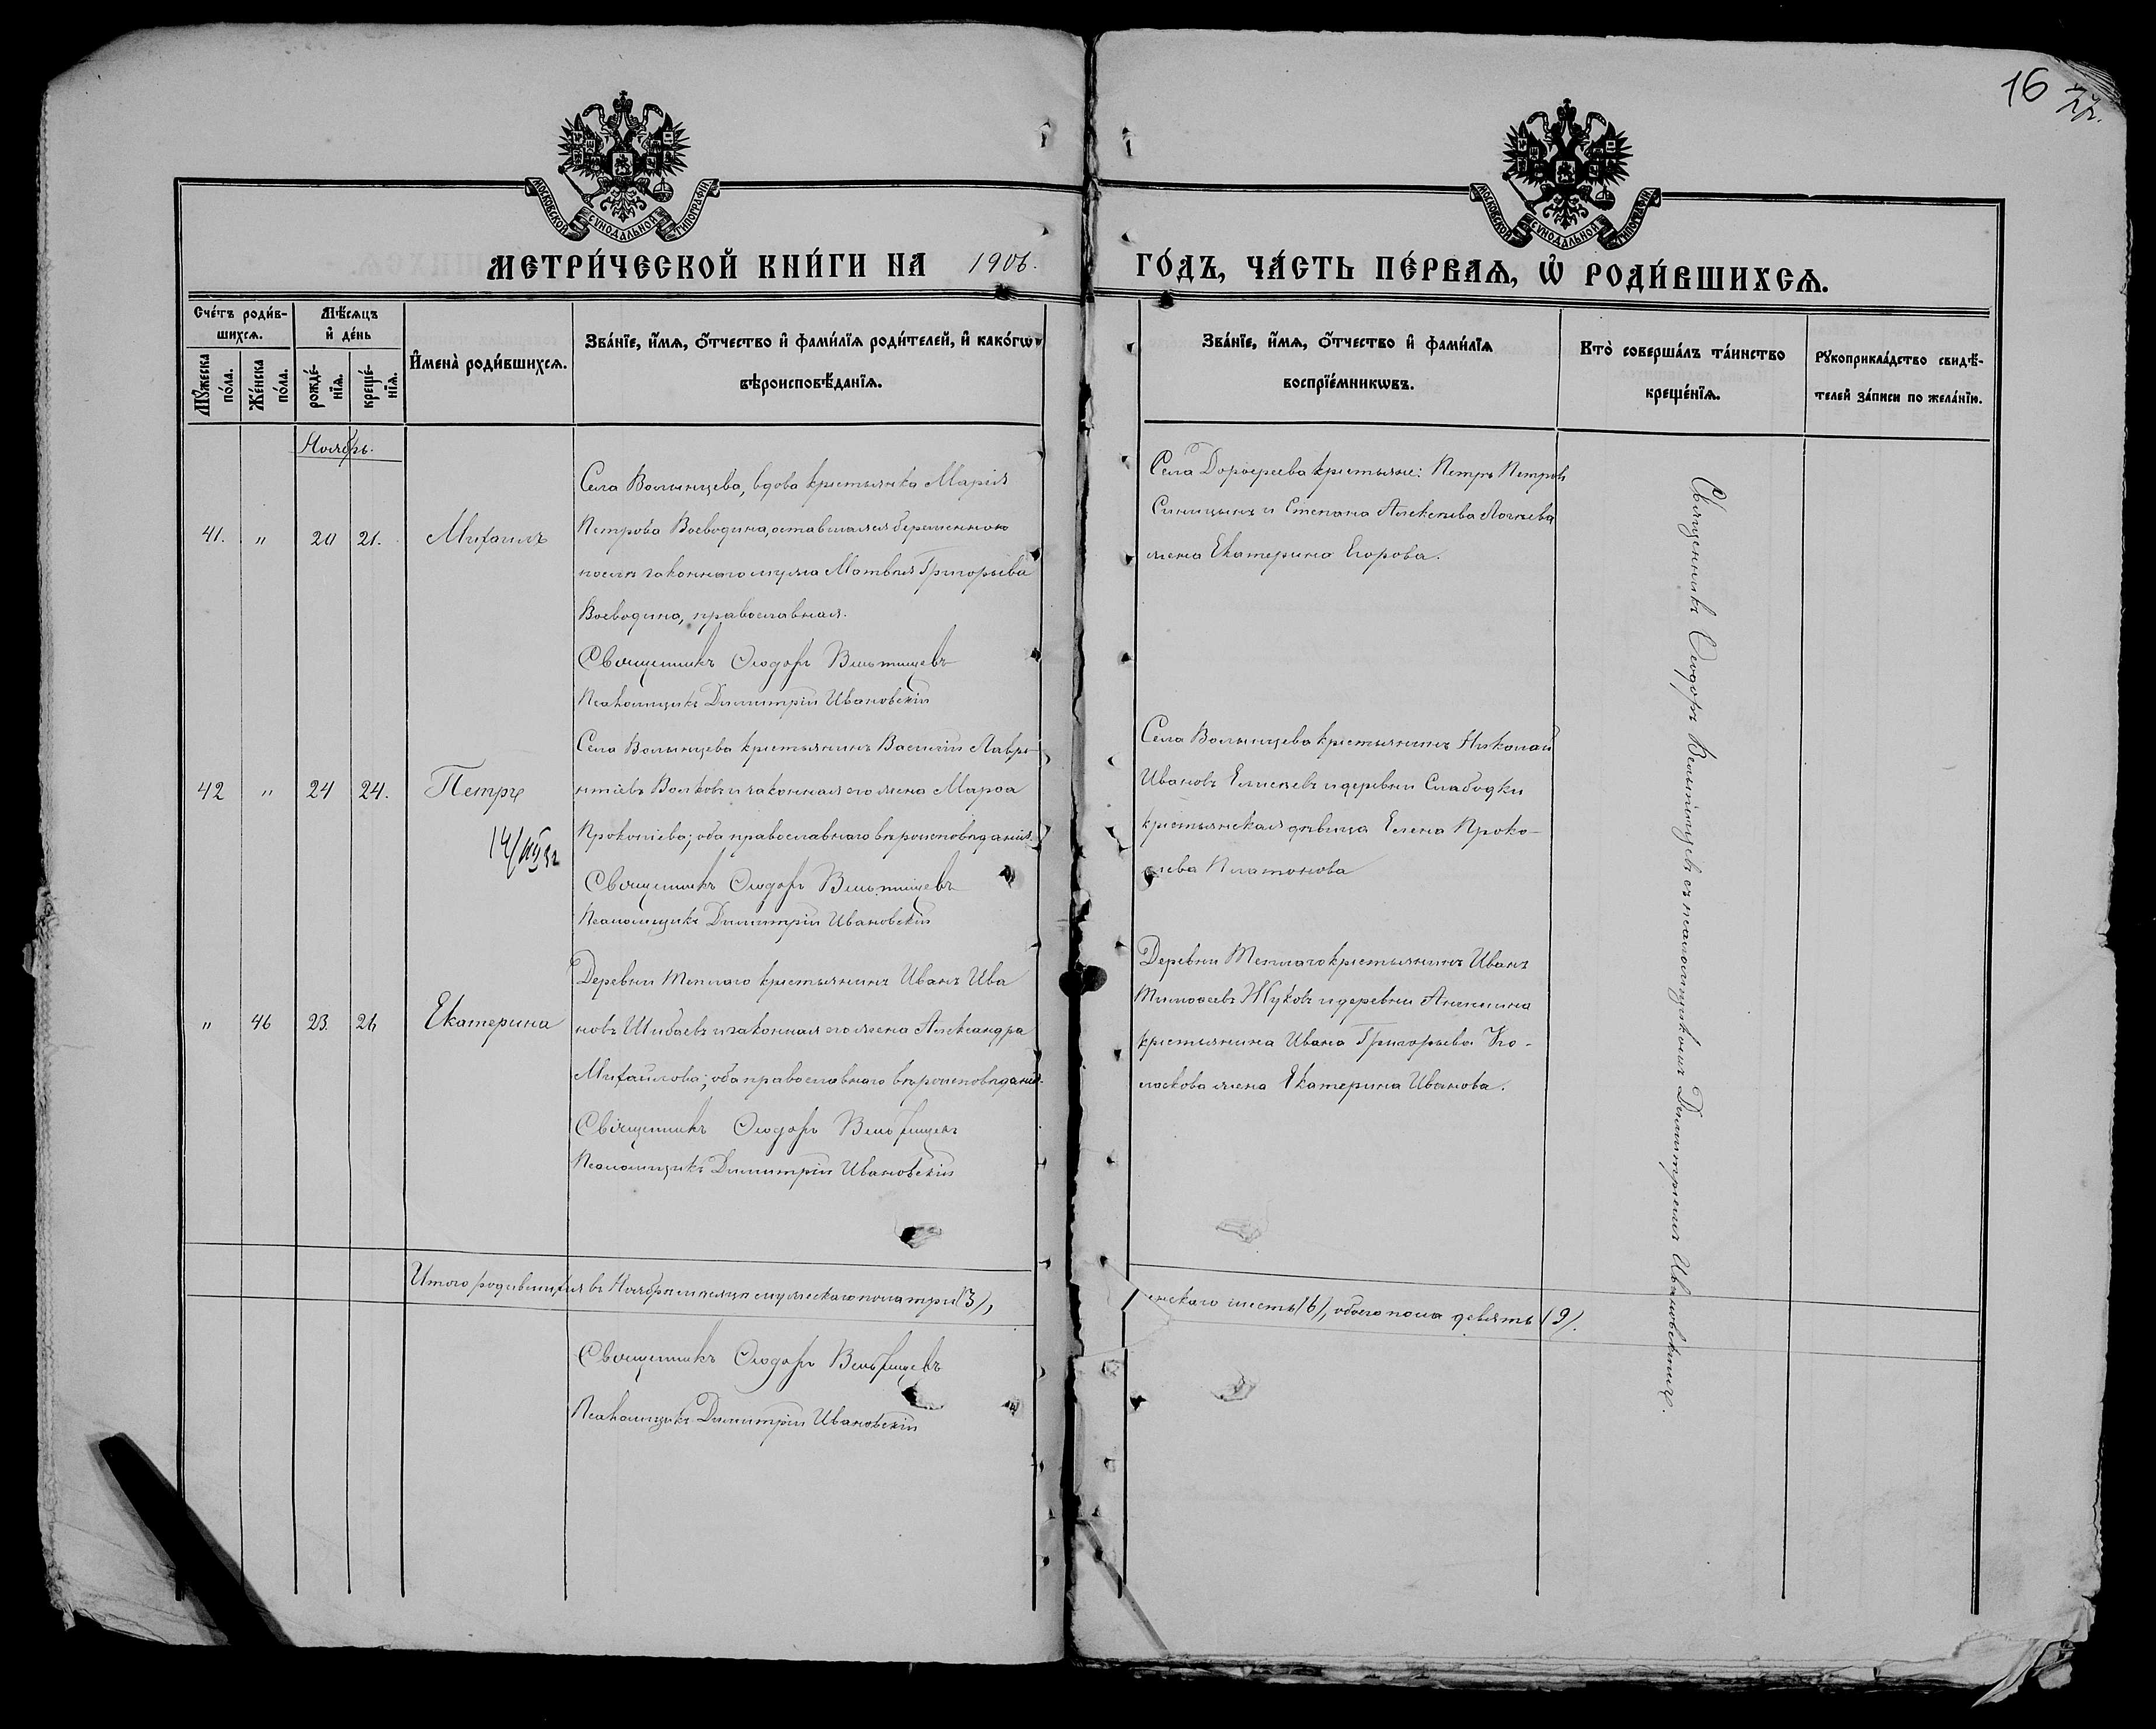 16
МОСКОВСКОЙ СѴНОДАЛЬНОЙ ТИПОГРАФІИ
МОСКОВСКОЙ СѴНОДАЛЬНОЙ ТИПОГРАФІИ
МЕТРИ́ЧЕСКОЙ КНИ́ГИ НА 1906. ГО́ДЪ, ЧА́СТЬ ПЕ́РВАѦ, Ѡ҆ РОДИ́ВШИХСѦ.
Сче́тъ роди́в-
шихсѧ.
Мꙋ́жеска по́ла.
Же́нска по́ла.
Мѣ́сѧцъ
и҆ де́нь
рожде́-
нїѧ.
креще́-
нїѧ.
И҆мена̀ роди́вшихсѧ.
Зва́нїе, и҆́мѧ, ѻ҆́тчество и҆ фами́лїѧ роди́телей, и҆ како́гѡ
вѣроисповѣ́данїѧ.
Зва́нїе, и҆́мѧ, ѻ҆́тчество и҆ фами́лїѧ
воспрїе́мникѡвъ.
Кто̀ соверша́лъ та́инство
креще́нїѧ.
Рꙋкоприкла́дство свидѣ́-
телей за́писи по жела́нїю.
Ноябрь.
41. " 20 21. Михаилъ
Села Волынцева, вдова крестьянка Марія
Петрова Воеводина, оставшаяся беременною
послѣ законнаго мужа Матвѣя Григорьева
Воеводина, православная.
Священникъ Ѳеодоръ Вельтищевъ
Псаломщикъ Димитрій Ивановскій
Села Дорофеева крестьяне: Петръ Петровъ
Синицынъ и Степана Алексѣева
жена Екатерина Егорова.
42 " 24 24. Петръ
Села Волынцева крестьянинъ Василій Лавре-
нтіевъ Волковъ и законная его жена Марѳа
Прокопіева; оба православнаго вѣроисповѣданія.
Священникъ Ѳеодоръ Вельтищевъ
Псаломщикъ Димитрій Ивановскій
Села Волынцева крестьянинъ Николай
Ивановъ Елисеевъ и деревни Слабодки
крестьянская дѣвица Елена Проко-
піева Платонова
" 46 23. 26 Екатерина
Деревни Теплаго крестьянинъ Иванъ Ива
новъ Шибаевъ и законная его жена Александра
Михайлова; оба православнаго вѣроисповѣданія.
Священникъ Ѳеодоръ Вельтищевъ
Псаломщикъ Димитрій Ивановскій
Деревни Теплаго крестьянинъ Иванъ
Тимоѳеевъ Жуковъ и деревни
крестьянина Ивана Григорьева Ко-
лоскова жена Екатерина Иванова.
Священникъ Ѳеодоръ Вельтищевъ съ псаломщикомъ Димитріемъ Ивановскимъ.
Итого родившихся въ Ноябрѣ мѣсяцѣ мужескаго пола три (3), женскаго шесть (6), обоего пола девять (9).
Священникъ Ѳеодоръ Вельтищевъ
Псаломщикъ Димитрій Ивановскій